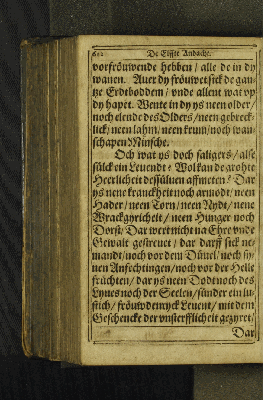 De Elffte Andacht.
vorfröuwende hebben / alle de in dy
wanen. Auer dy fröuwet sick de gan-
tze Erdtboddem / vnde allent wat vp
dy hapet. Wente in dy ys neen older /
noch elende des Olders / neen gebreck-
lick / neen lahm / neen krum / noch wan-
schapen Minsche.
Och wat ys doch saligers / alse
sülck ein Leuendt? Wol kan de grohte
Heerlicheit dessüluen affmeten? Dar
ys nene kranckheit noch armodt / neen
Hader / neen Torn / neen Nydt / nene
Wrackgyricheit / neen Hunger noch
Dorst / Dar wert nicht na Ehre vnde
Gewalt gestreuet / dar darff sick ne-
mandt / noch vor dem Düuel / noch sy-
nen Anfechtingen / noch vor der Helle
früchten / dar ys neen Dodt noch des
Lyues noch der Seelen / sünder ein lu-
stich / fröuwdenryck Leuent / mit dem
Geschencke der vnsterfflicheit gezyret /
Dar